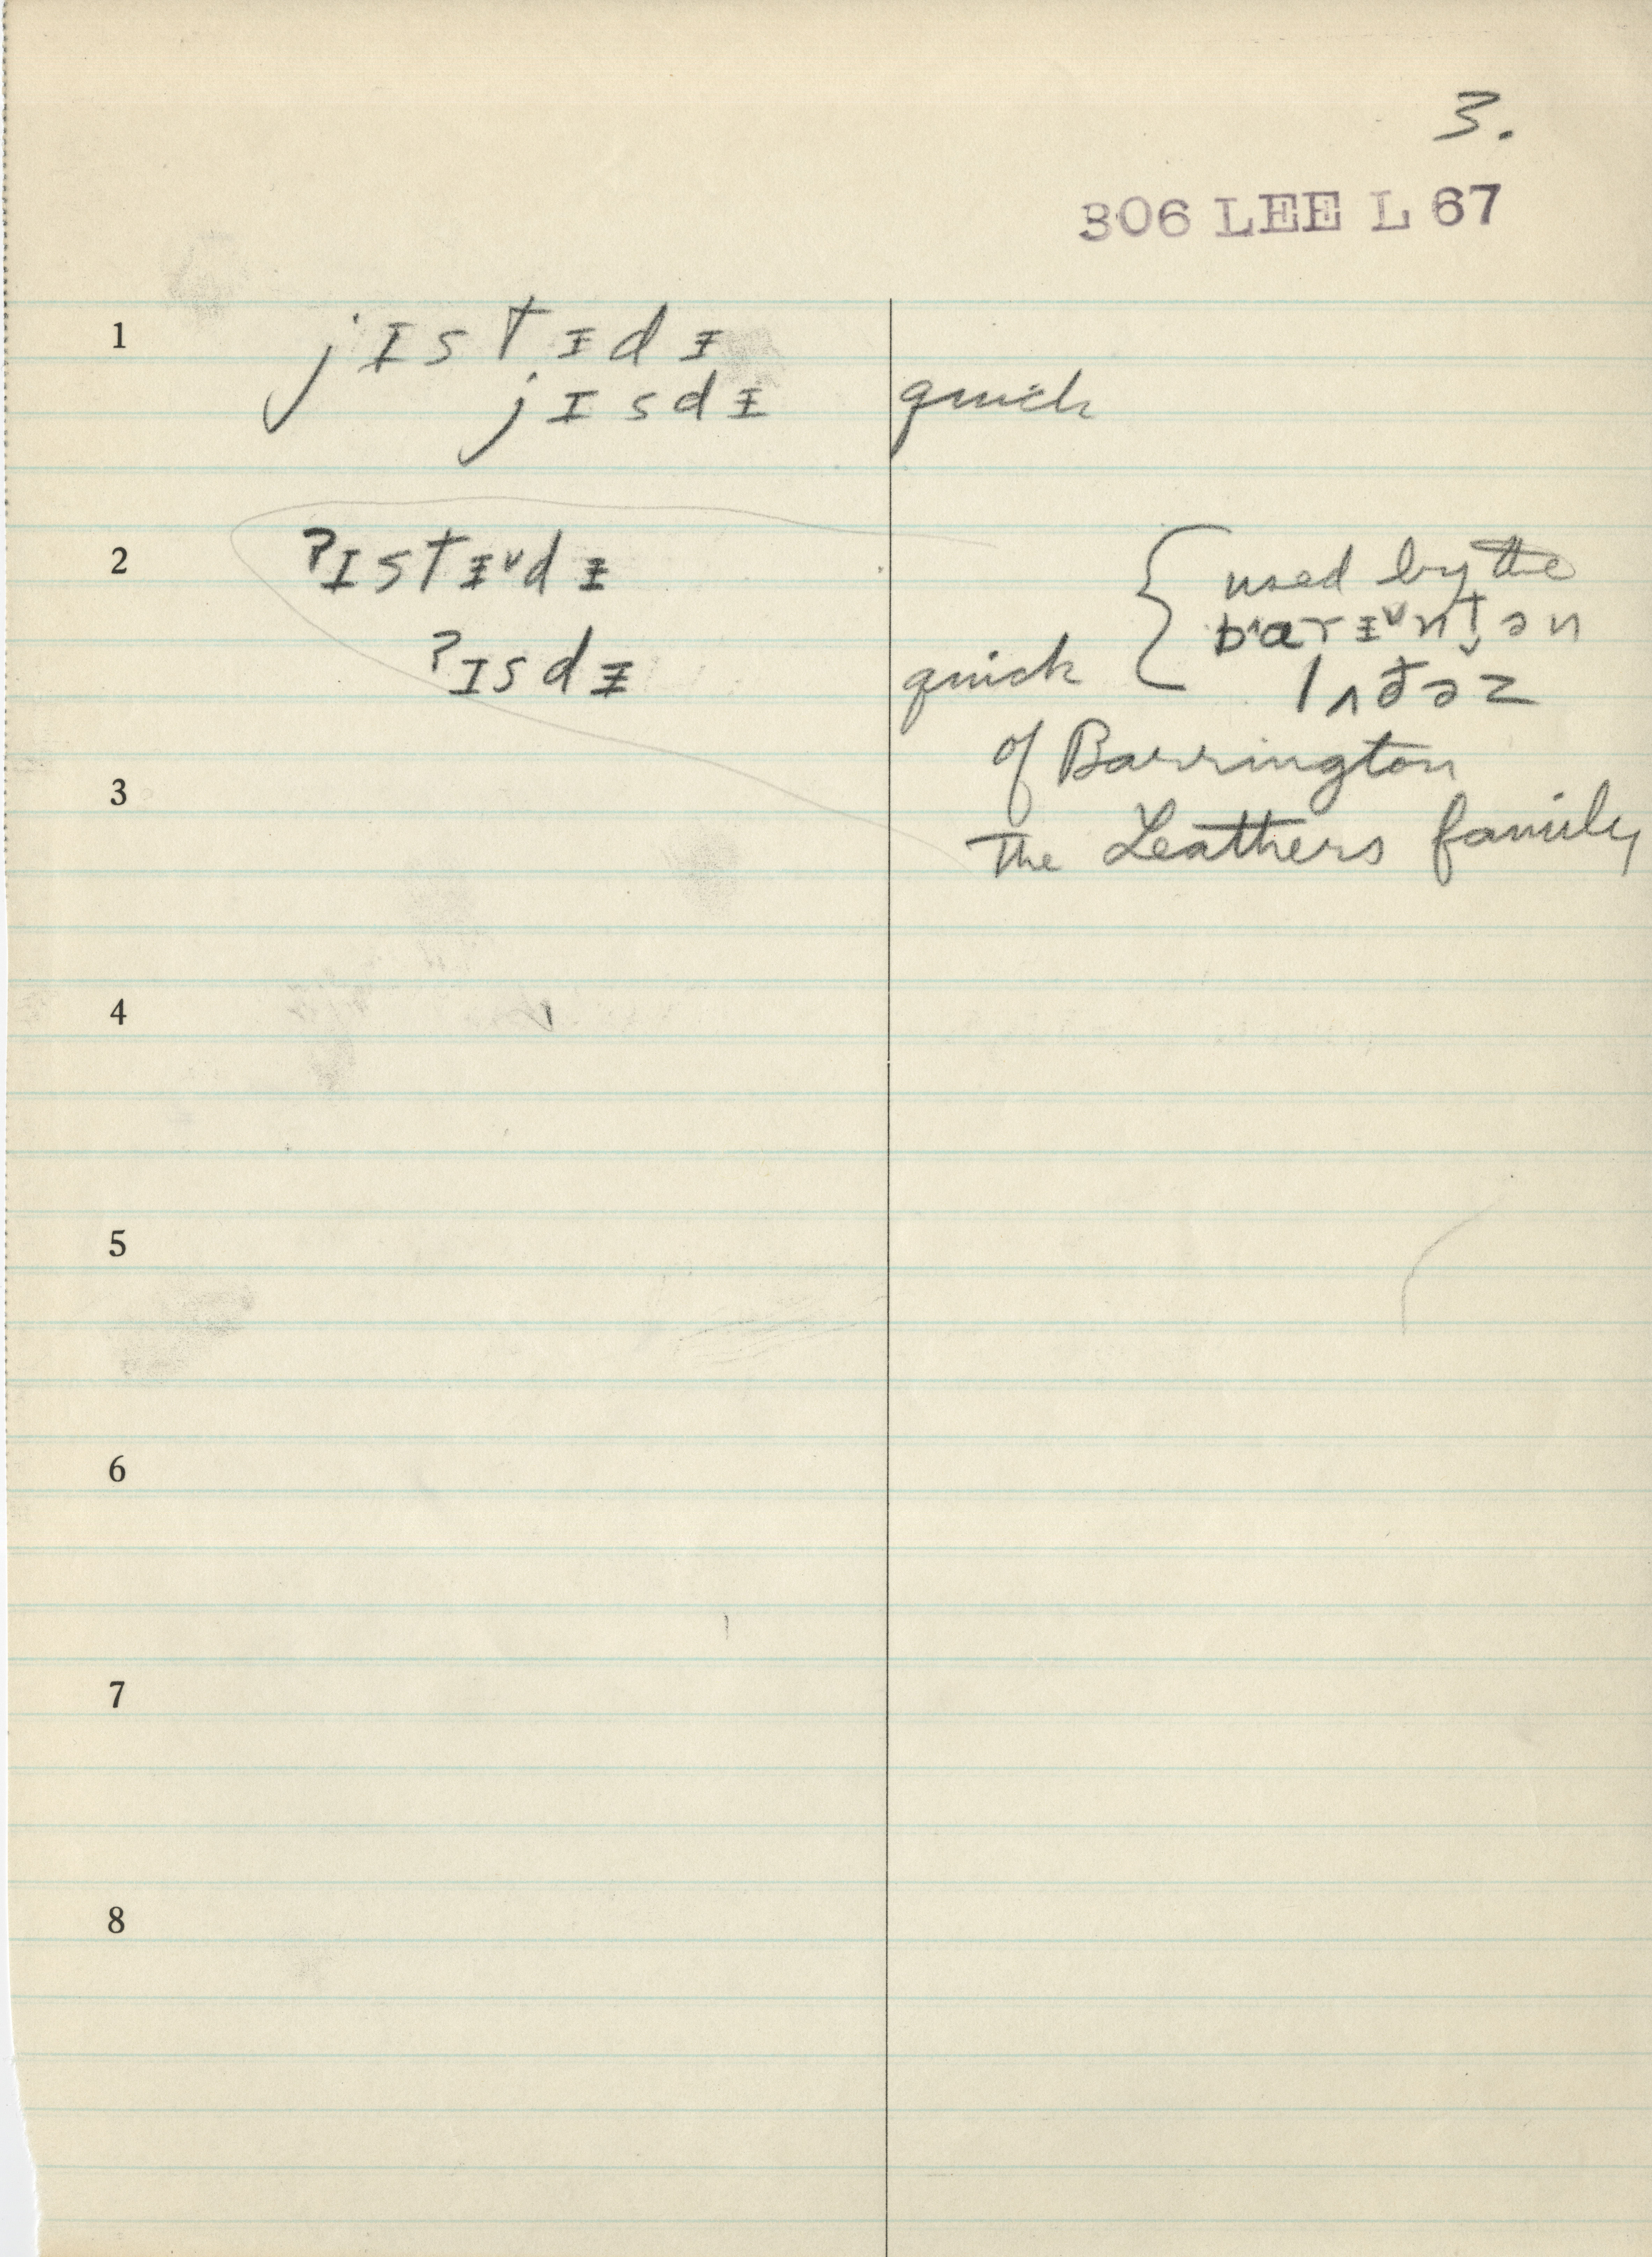 3.
306 LEE L 67
1
jɪstᵻdᵻ
jɪsdᵻ quick
2
ʔɪstᵻ˅dᵻ
ʔɪsdᵻ quick { used by the
barᵻ˅ntən
lʌðəz
of Barrington
The Leathers family
3
4
5
6
7
8